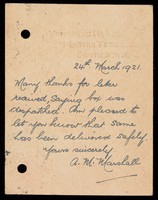 24th March 1921.
Many thanks for letter
received, saying box was
despatched. Am pleased to
let you know that same
has been delivered safely
Yours sincerely
A. M. Marshall